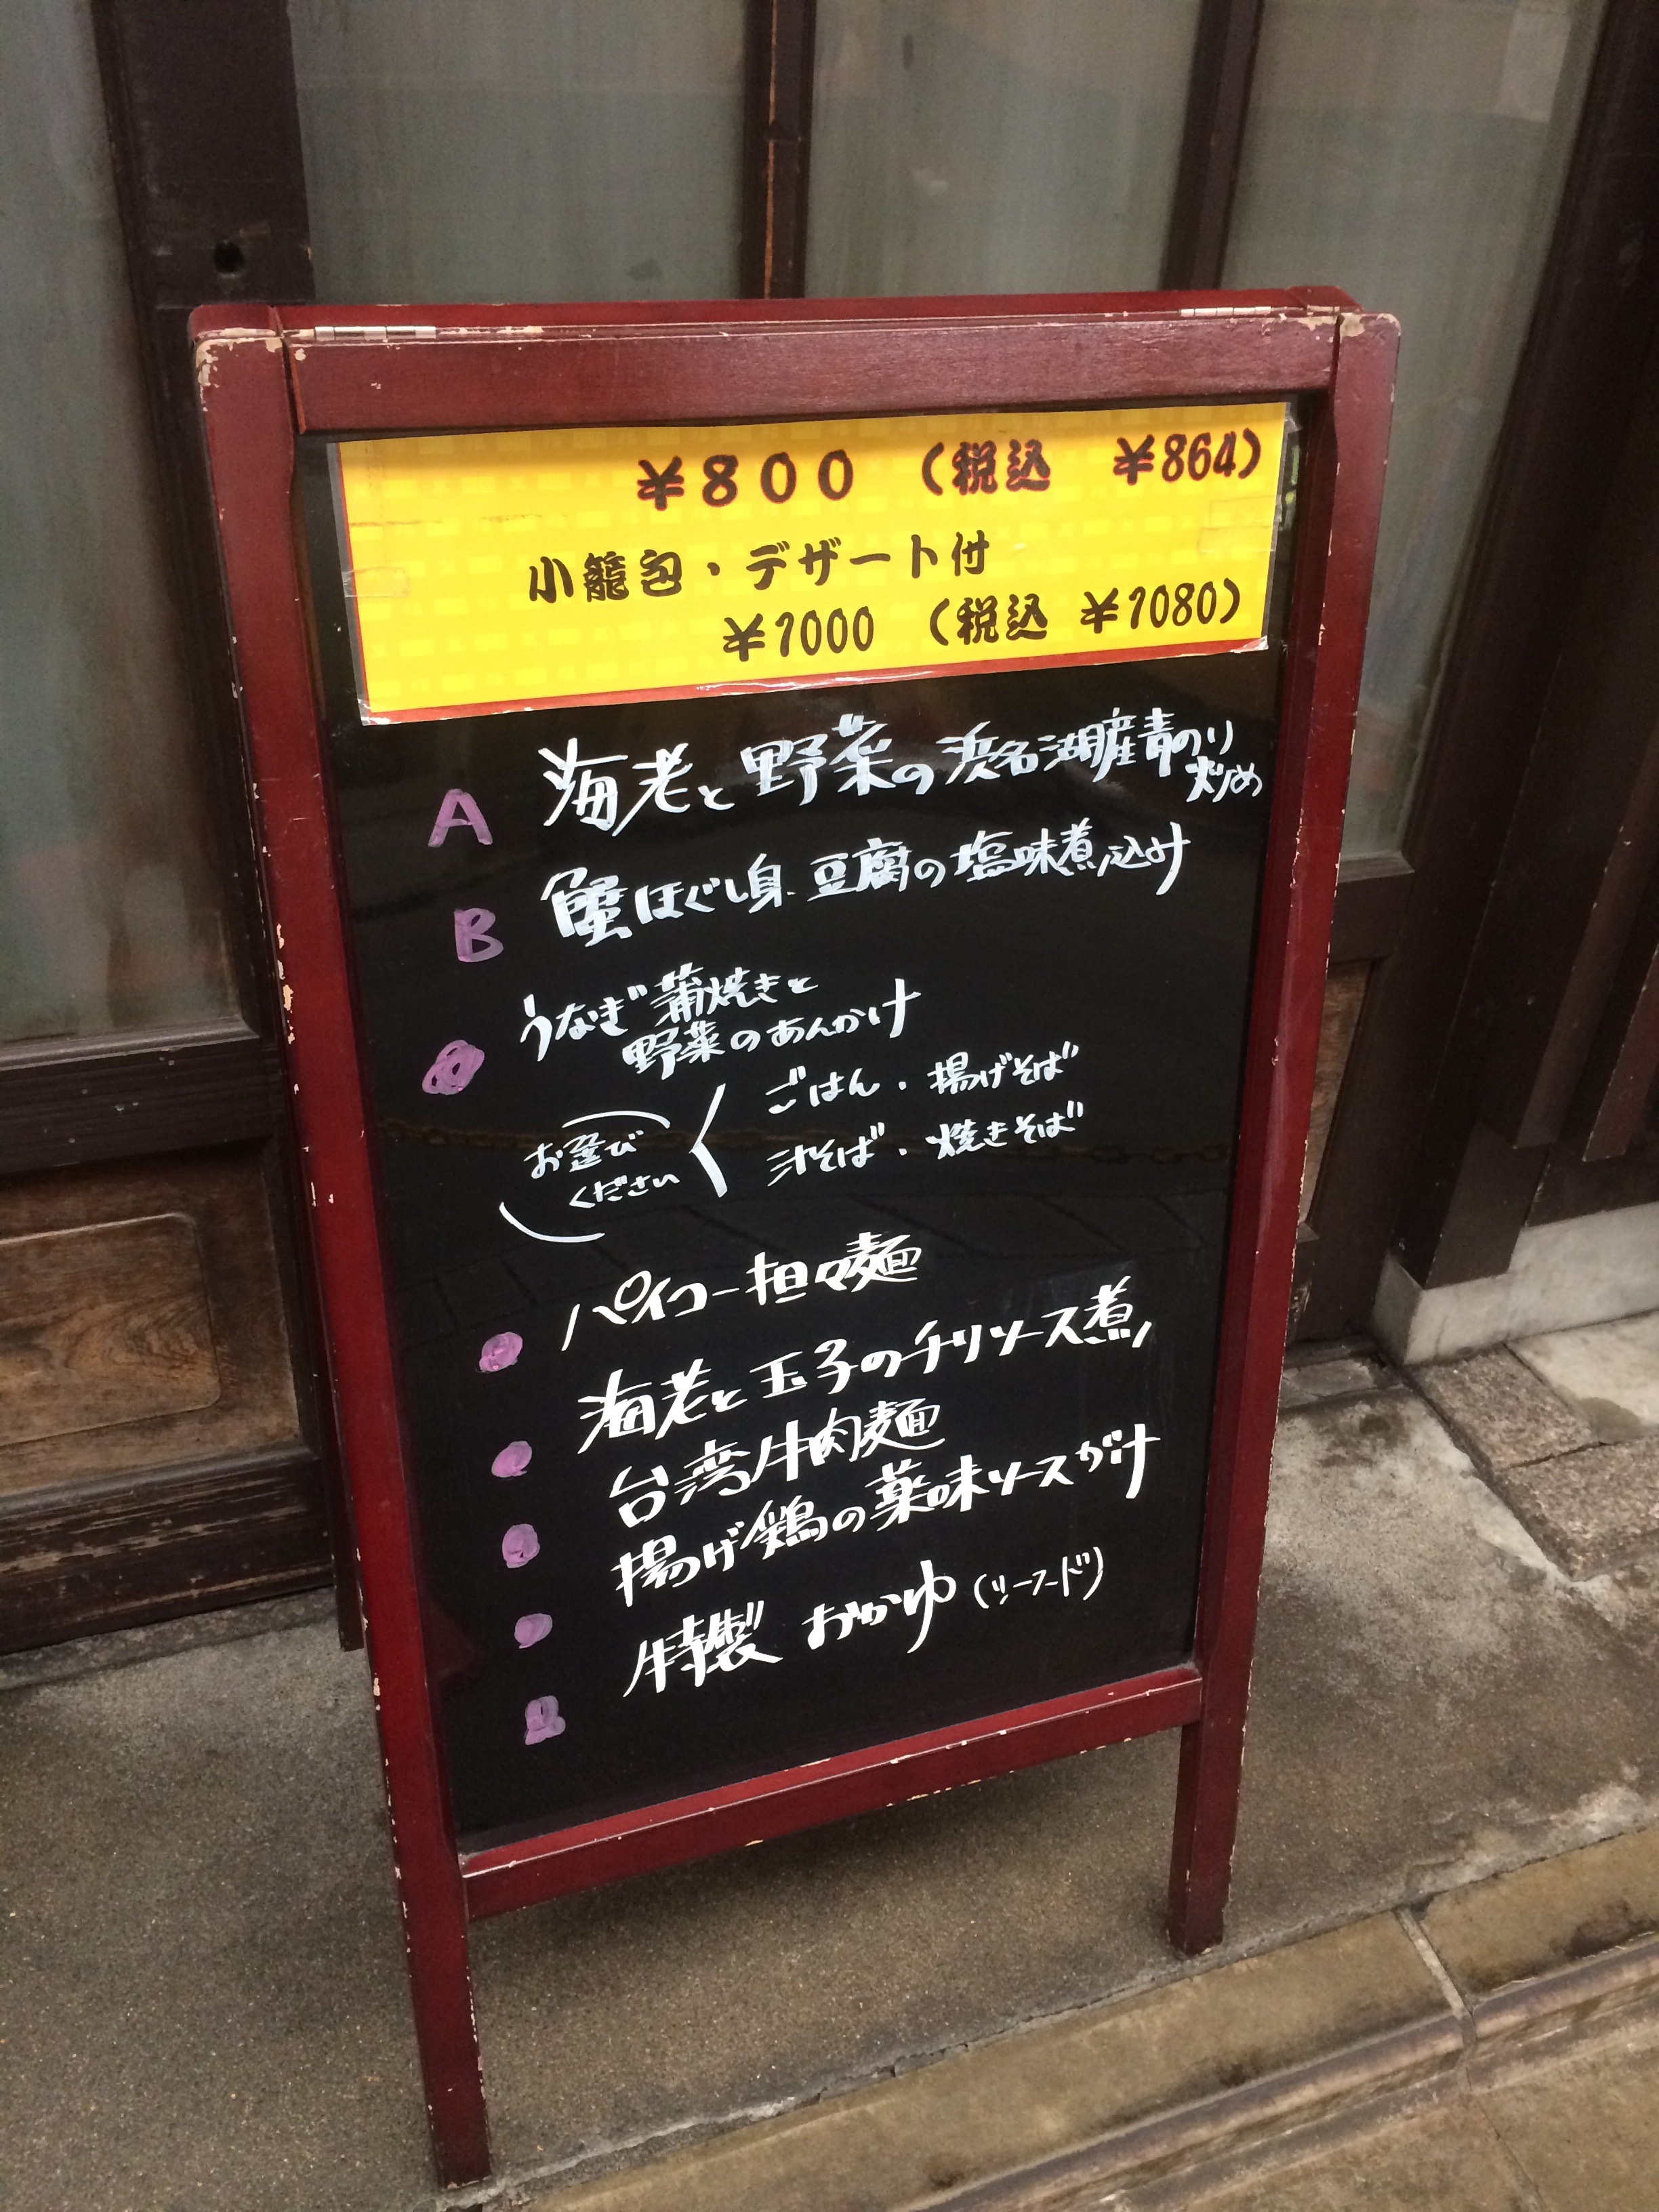 ¥800 (税込 ¥864)
小籠包・デザート付
¥1000 (税込 ¥1080)
A 海老と野菜の浜名湖産青のり
炒め
B 蟹ほぐし身 豆腐の塩味煮込み
うなぎ蒲焼きと
野菜のあんかけ
お選び
ください
ごはん・揚げそば
汁そば・焼きそば
パイコー担々麺
海老と玉子のチリソース煮
台湾牛肉麺
揚げ鶏の薬味ソースがけ
特製 おかゆ(シーフード)